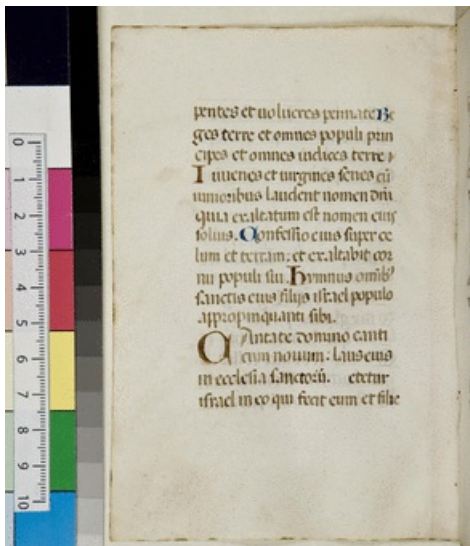 pentes et uolucres pennate Re
ges terre et omnes populi prin
cipes et omnes iudices terre
Iuuenes et uirgines senes cū
iunioribus laudent nomen dn̄i
quia exaltatum est nomen eius
solius. Confessio eius super ce
lum et terram: et exaltabit cor
nu populi sui. hymnus omīb'
sanctis eius filijs israel populo
appropinquanti sibi.
Cantate domino canti
cum nouum: laus eius
in ecclesia sanctorū. etetur
israel in eo qui fecit eum et filie
0 1 2 3 4 5 6 7 8 9 10